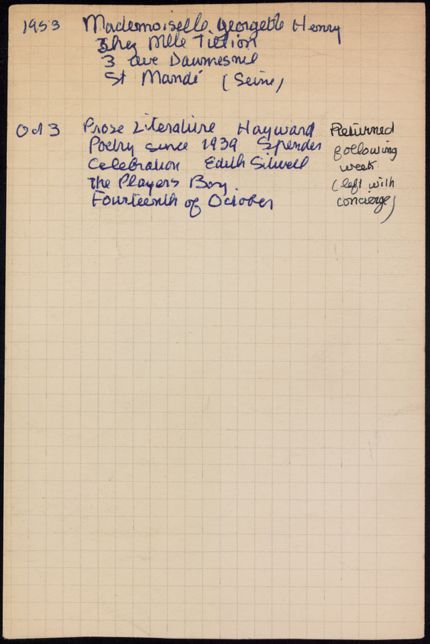 1953 Mademoiselle Georgette Henry
chez Mlle Tillion
3 Ave Daumesnil
St Mandé (Seine)
Oct 3 Prose Literature Hayward
Poetry since 1939 Spender
Celebration Edith Sitwell
the Players Boy.
Fourteenth of October
Returned
following
week
(left with
concierge)